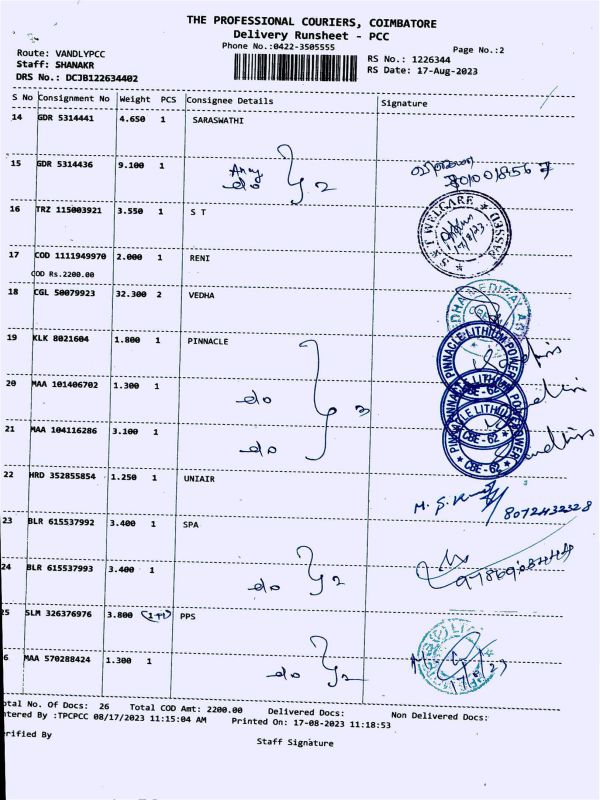 THE PROFESSIONAL COURIERS, COIMBATORE
Delivery Runsheet - PCC
Phone No.:0422-3505555
Page No.:2
Route: VANDLYPCC
RS No.: 1226344
Staff: SHANAKR
RS Date: 17-Aug-2023
DRS No.: DCJB122634402
S No Consignment No Weight PCS Consignee Details Signature
14 GDR 5314441 4.650 1 SARASWATHI
15 GDR 5314436 9.100 1 do } 2
16 TRZ 115003921 3.550 1 S T
S & T WELCARE * PASSED *
17/8/23
17 COD 1111949970 2.000 1 RENI
COD Rs.2200.00
18 CGL 50079923 32.300 2 VEDHA
19 KLK 8021604 1.800 1 PINNACLE
PINNACLE LITHIUM POWER
20 MAA 101406702 1.300 1 do } 3
21 MAA 104116286 3.100 1 do
CBE - 62
22 HRD 352855854 1.250 1 UNIAIR
8072432328
23 BLR 615537992 3.400 1 SPA
24 BLR 615537993 3.400 1 do } 2
25 SLM 326376976 3.800 (1+1) PPS
6 MAA 570288424 1.300 1 do } 2
17/8/23
otal No. Of Docs: 26 Total COD Amt: 2200.00 Delivered Docs: Non Delivered Docs:
ntered By :TPCPCC 08/17/2023 11:15:04 AM Printed On: 17-08-2023 11:18:53
erified By
Staff Signature